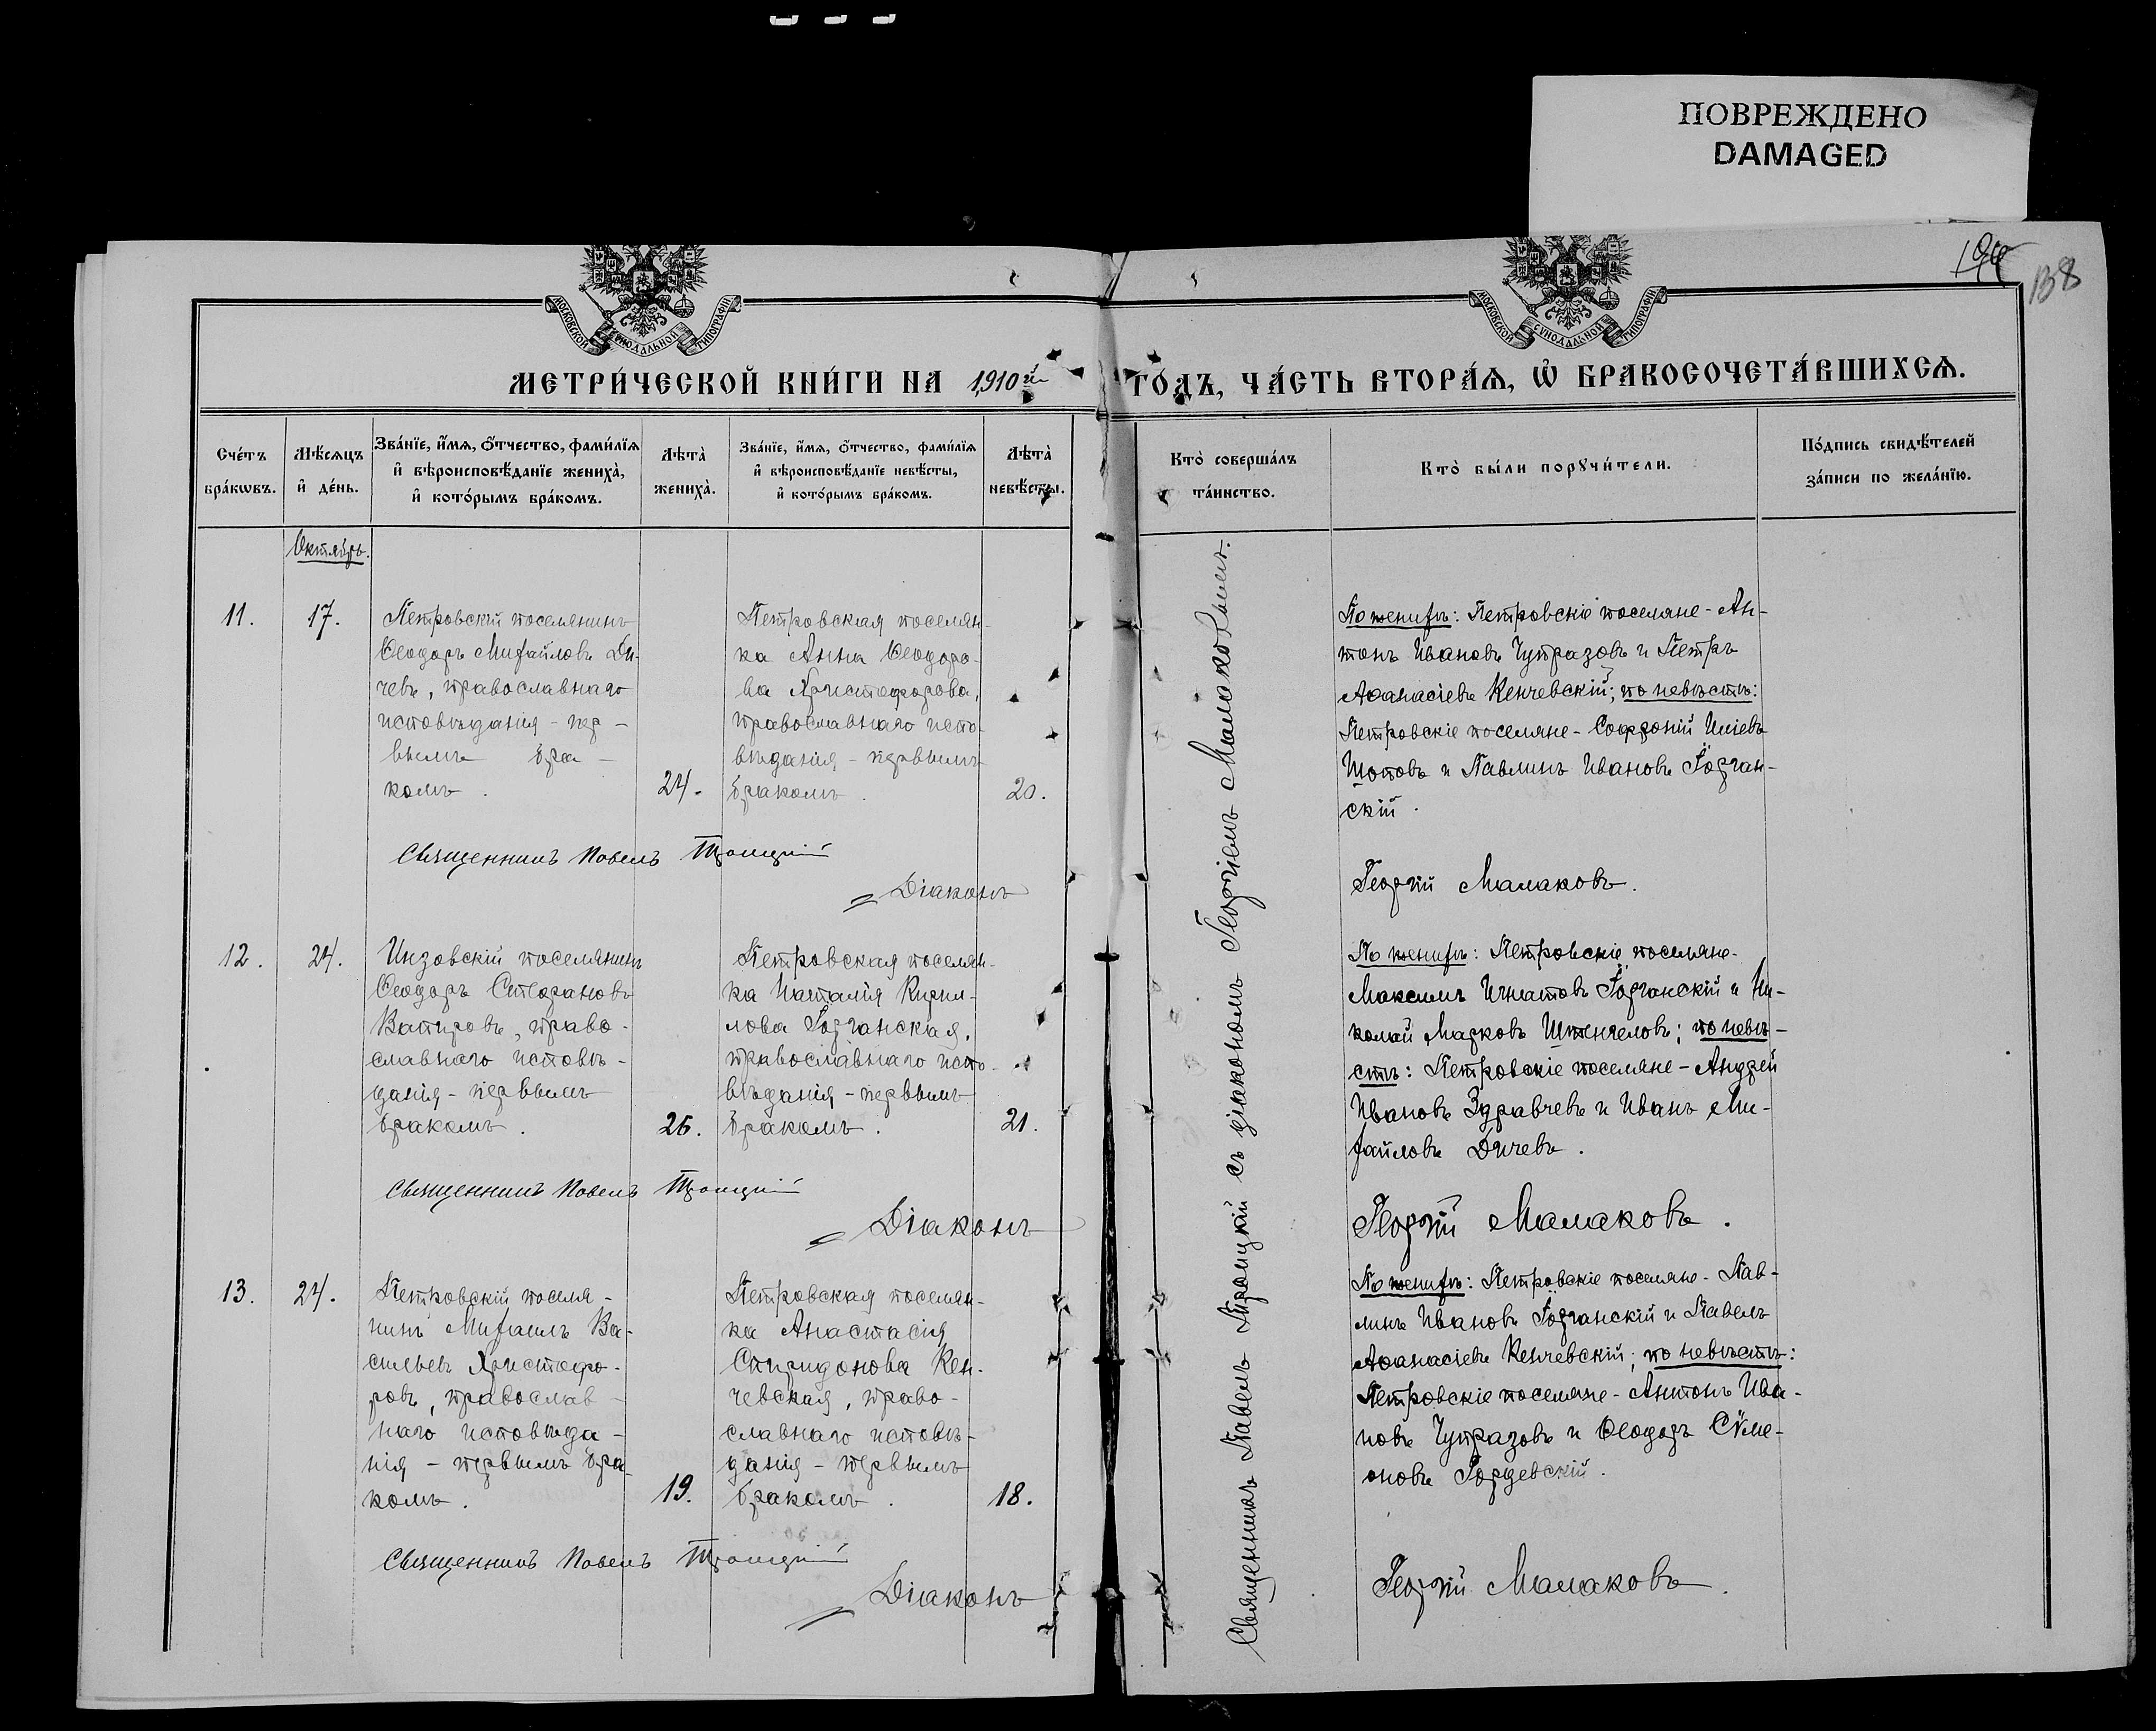 ПОВРЕЖДЕНО
DAMAGED
138
МОСКОВСКОЙ СѴНОДАЛЬНОЙ ТИПОГРАФІИ
МОСКОВСКОЙ СѴНОДАЛЬНОЙ ТИПОГРАФІИ
МЕТРИ́ЧЕСКОЙ КНИ́ГИ НА 1910й ГО́ДЪ, ЧА́СТЬ ВТОРА́Ѧ, Ѡ҆ БРАКОСОЧЕТА́ВШИХСѦ.
Сче́тъ бра́кѡвъ.
Мѣ́сѧцъ и҆ де́нь.
Зва́нїе, и҆́мѧ, ѻ҆́тчество, фами́лїѧ
и҆ вѣроисповѣ́данїе жениха̀,
и҆ кото́рымъ бра́комъ.
Лѣта̀ жениха̀.
Зва́нїе, и҆́мѧ, ѻ҆́тчество, фами́лїѧ
и҆ вѣроисповѣ́данїе невѣ́сты,
и҆ кото́рымъ бра́комъ.
Лѣта̀ невѣ́сты.
Кто̀ соверша́лъ
та́инство.
Кто̀ бы́ли порꙋчи́тели.
По́дпись свидѣ́телей
за́писи по жела́нїю.
Октябрь.
11.
17.
Петровскій поселянинъ
Ѳеодоръ Михайловъ Ди-
чевъ, православнаго
исповѣданія - пер-
вымъ бра-
комъ.
24.
Петровская поселян-
ка Анна Ѳеодоро-
ва Христофорова,
православнаго испо-
вѣданія - первымъ
бракомъ.
20.
По женихѣ: Петровскіе поселяне - Ан-
тонъ Ивановъ Чупразовъ и Петръ
Аѳанасіевъ Кенчевскій; по невѣстѣ:
Петровскіе поселяне - Софроній Иліевъ
Шоповъ и Павлинъ Ивановъ Горган-
скій.
Священникъ Павелъ Троицкій
Діаконъ
Георгій Малаковъ.
12.
24.
Инзовскій поселянинъ
Ѳеодоръ Стефановъ
Вапировъ, право-
славнаго исповѣ-
данія - первымъ
бракомъ.
26.
Петровская поселян-
ка Наталія Кирил-
лова Горганская,
православнаго испо-
вѣданія - первымъ
бракомъ.
21.
По женихѣ: Петровскіе поселяне -
Максимъ Игнатовъ Горганскій и Ни-
колай Марковъ Штенгеловъ; по невѣ-
стѣ: Петровскіе поселяне - Андрей
Ивановъ Здравчевъ и Иванъ Ми-
хайловъ Дичевъ.
Священникъ Павелъ Троицкій
Діаконъ
Георгій Малаковъ.
13.
24.
Петровскій поселя-
нинъ Михаилъ Ва-
сильевъ Христофо-
ровъ, православ-
наго исповѣда-
нія - первымъ бра-
комъ.
19.
Петровская поселян-
ка Анастасія
Спиридонова Кен-
чевская, право-
славнаго исповѣ-
данія - первымъ
бракомъ.
18.
По женихѣ: Петровскіе поселяне - Пав-
линъ Ивановъ Горганскій и Павелъ
Аѳанасіевъ Кенчевскій; по невѣстѣ:
Петровскіе поселяне - Антонъ Ива-
новъ Чупразовъ и Ѳеодоръ Сѵме-
оновъ Горцевскій.
Священникъ Павелъ Троицкій
Діаконъ
Георгій Малаковъ.
Священникъ Павелъ Троицкій съ діакономъ Георгіемъ Малаковымъ.